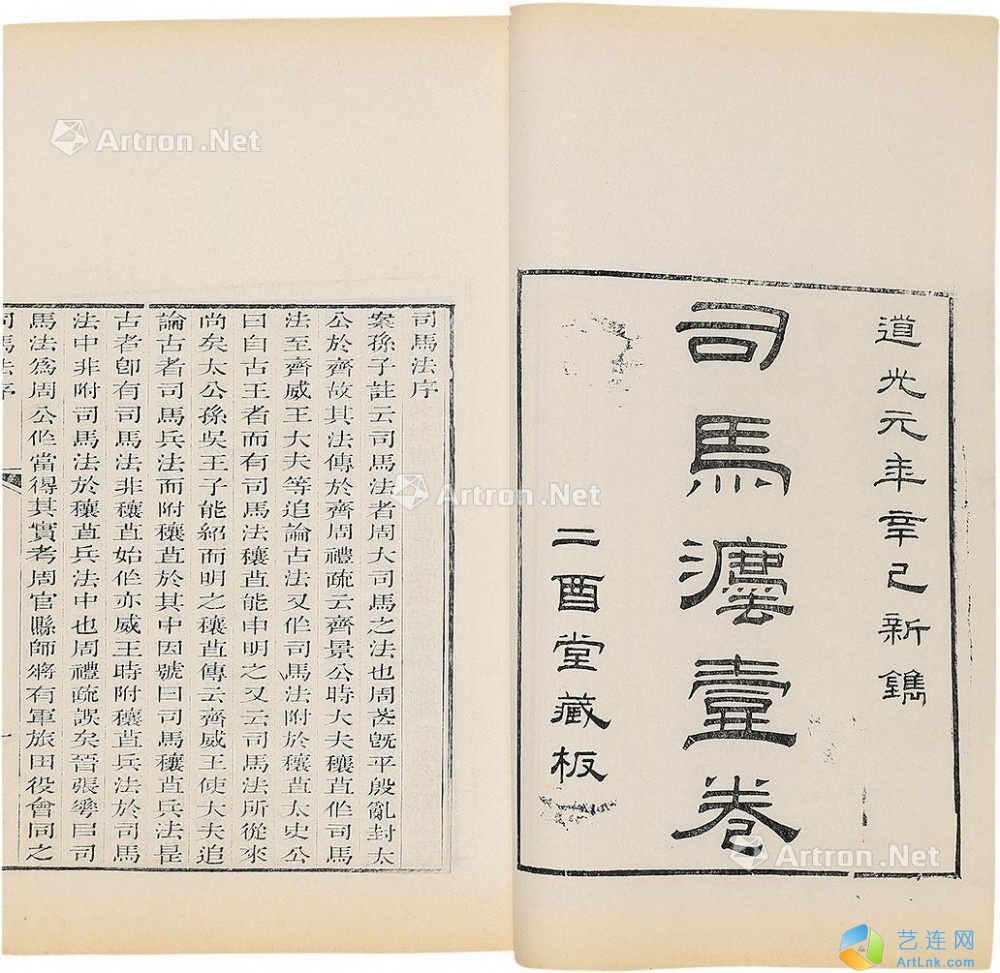 道光元年辛巳新鐫
司馬灋壹卷
二酉堂藏板
司馬法序
案孫子註云司馬法者周大司馬之法也周茂旣平殷亂封太
公於齊故其法傳於齊周禮疏云齊景公時大夫穰苴作司馬
法至齊威王大夫等追論古法又作司馬法附於穰苴太史公
曰自古王者而有司馬法穰苴能申明之又云司馬法所從來
尚矣太公孫吳王子能紹而明之穰苴傳云齊威王使大夫追
論古者司馬兵法而附穰苴於其中因號曰司馬穰苴兵法是
古者卽有司馬法非穰苴始作亦威王時附穰苴兵法於司馬
法中非附司馬法於穰苴兵法中也周禮疏誤矣晉張華㠯司
馬法爲周公作當得其實考周官縣師將有軍旅田役會同之
司馬法序
一
Artron.Net
Artron.Net
Artron.Net
艺连网
ArtLnk.com